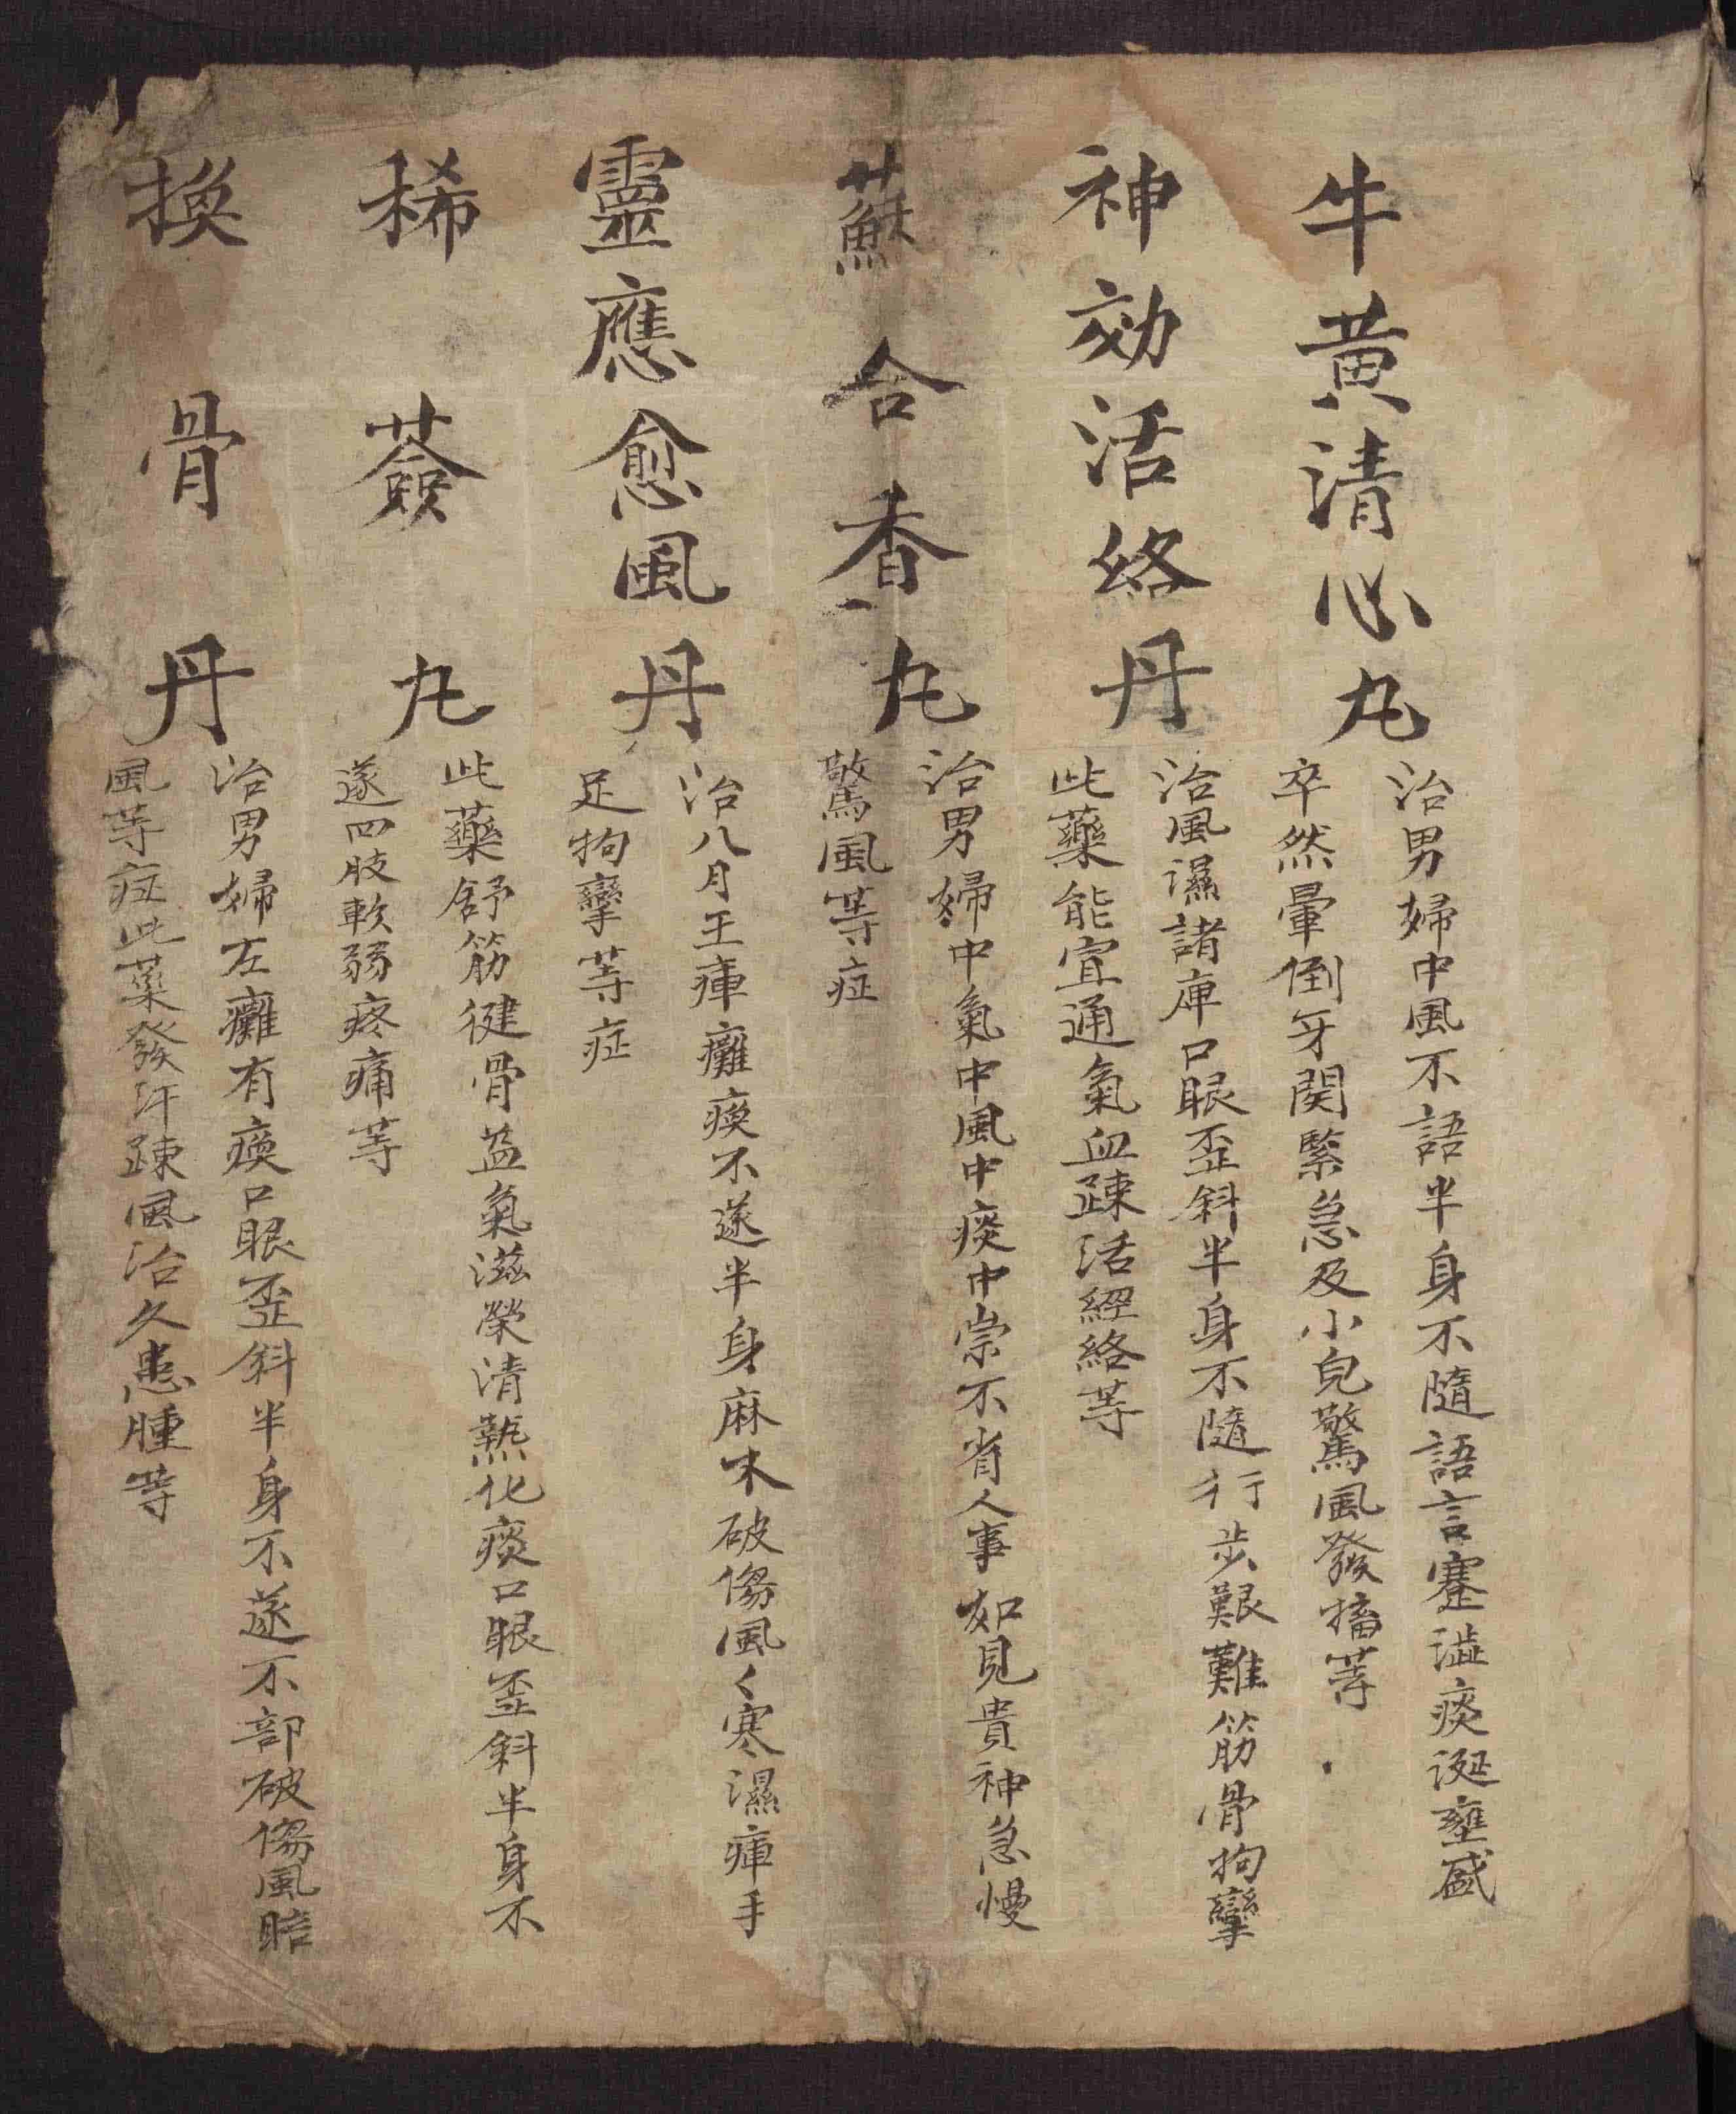 牛黄清心丸
治男婦中風不語半身不隨語言蹇澁痰涎壅盛
卒然暈倒牙関緊急及小兒驚風發搐等
神効活絡丹
治風濕諸庳口眼歪斜半身不隨行步艱難筋骨拘攣
此藥能宣通氣血踈活經絡等
蘇合香丸
治男婦中氣中風中痰中祟不省人事如見貴神急慢
驚風等症
靈應愈風丹
治八月王痺癱瘓不遂半身麻木破傷風〻寒濕痺手
足拘攣等症
稀薟丸
此藥舒筋健骨益氣滋榮清熱化痰口眼歪斜半身不
遂四肢軟弱疼痛等
換骨丹
治男婦左癱有瘓口眼歪斜半身不遂不部破傷風暗
風等症此藥發汗踈風治久患腫等